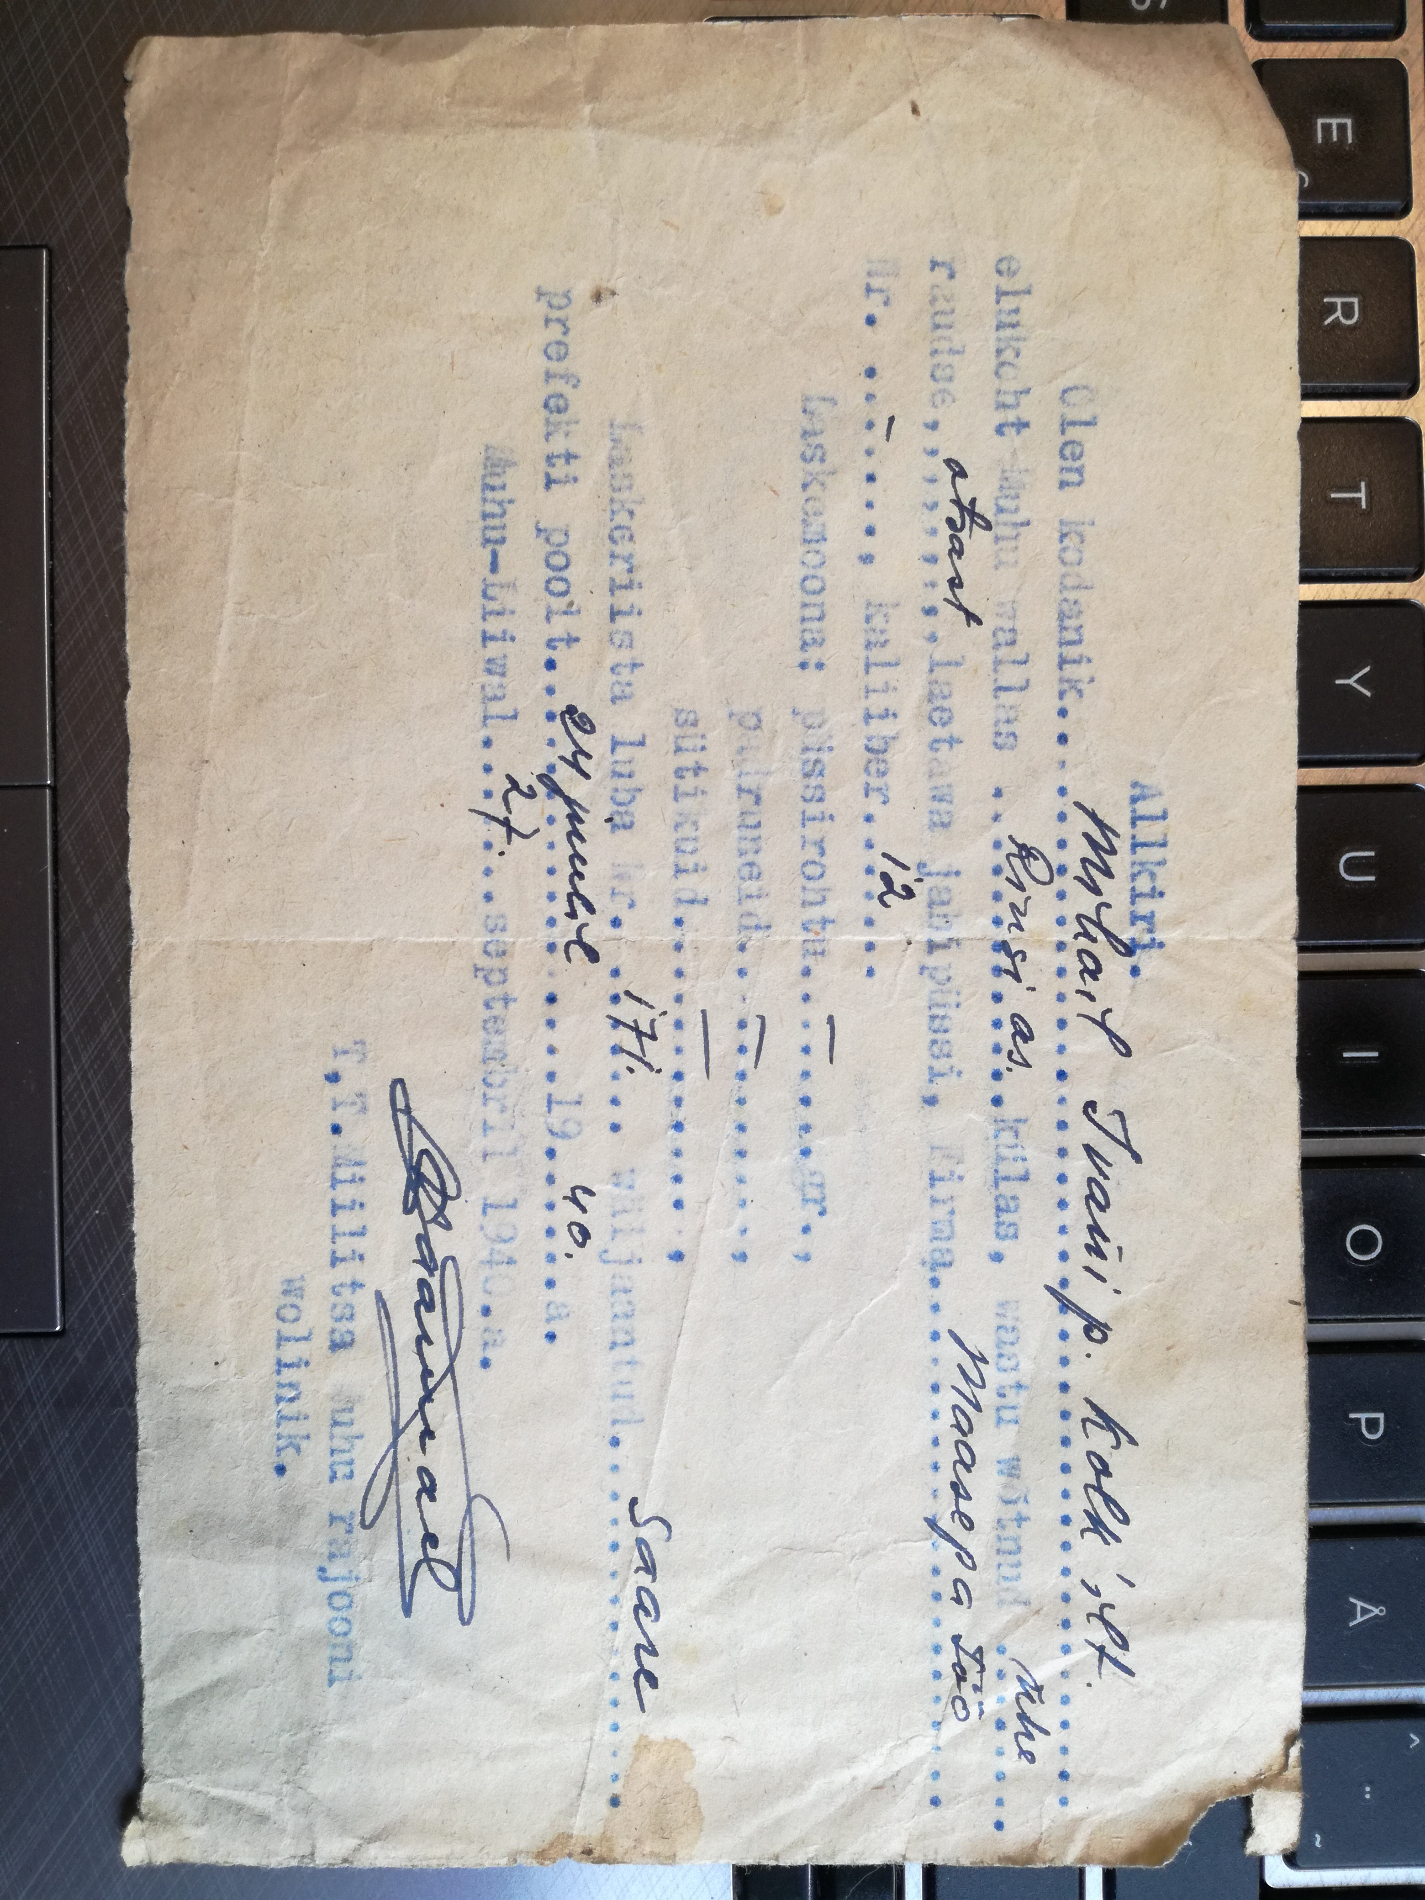 Allkiri.
Olen kodanik.... Mihail Ivani p. Kolk'ilt.
elukoht Muhu wallas .. Rinsi as. külas, wastu wõtnud ühe
raudse,,,,,,, otsast laetawa jahipüssi, Firma.. Maasepa töö
Nr. ..–...., kaliiber.. 12 ...
Laskemoona: püssirohtu.. – ....gr.,
pudruneid.. – ......,
sütikuid.. — .......,
Laskeriista luba Nr. .. 171. .. wäljaantud.... Saare
prefekti poolt.. 24 juulil .... 19.. 40. ..a.
Muhu-Liiwal... 27. ..septembril 1940.a.
T.T.Miilitsa uhu rajooni
wolinik.
E
R
T
Y
U
I
O
P
Å
^
¨
~